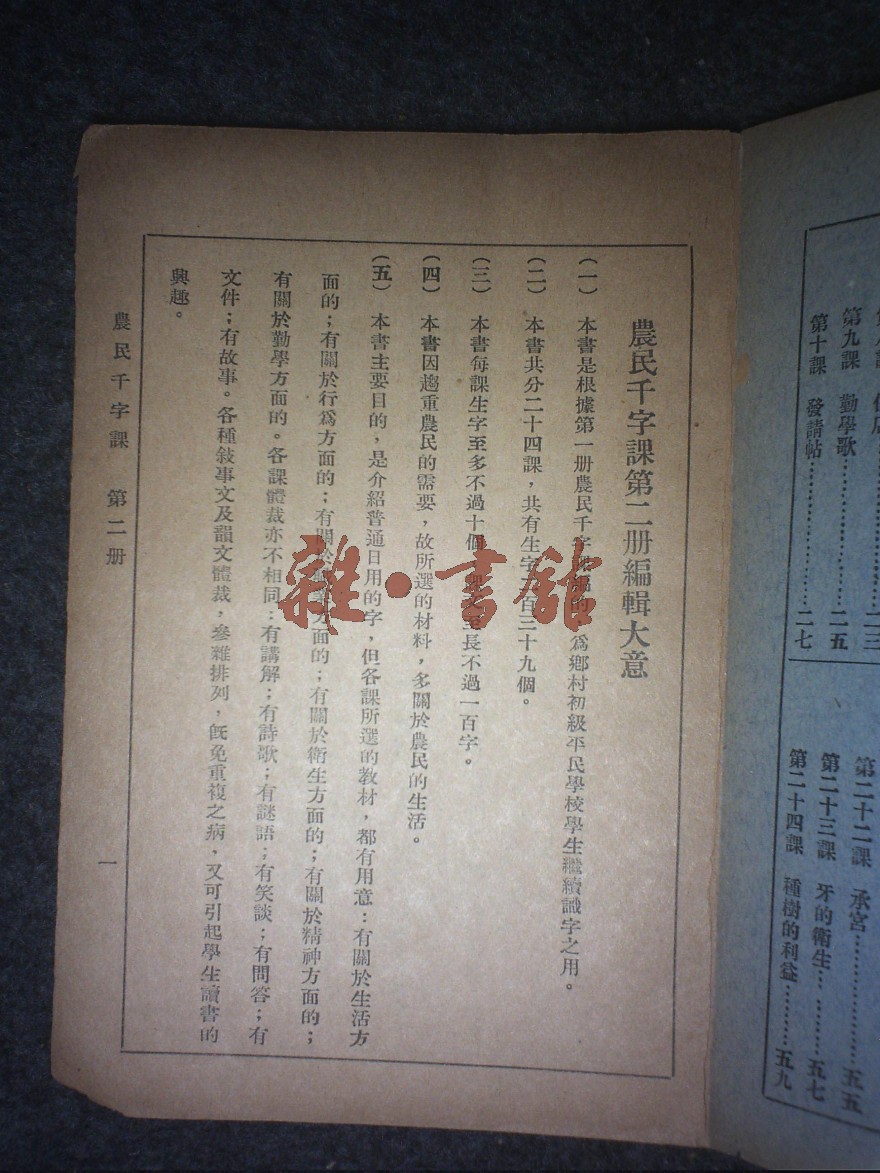 農民千字課第二册編輯大意
(一) 本書是根據第一册農民千字 的 爲鄉村初級平民學校學生繼續識字之用。
(二) 本書共分二十四課,共有生字 百三十九個。
(三) 本書每課生字至多不過十個 至長不過一百字。
(四) 本書因趨重農民的需要,故所選的材料,多關於農民的生活。
(五) 本書主要目的,是介紹普通日用的字,但各課所選的教材,都有用意:有關於生活方
面的;有關於行爲方面的;有關於 方面的;有關於衛生方面的;有關於精神方面的;
有關於勤學方面的。各課體裁亦不相同:有講解;有詩歌;有謎語;有笑談;有問答;有
文件;有故事。各種敍事文及韻文體裁,參雜排列,旣免重複之病,又可引起學生讀書的
興趣。
農民千字課 第二册
一
雜·書舘
第九課 勤學歌……二五
第十課 發請帖……二七
第二十二課 承宮……五五
第二十三課 牙的衛生……五七
第二十四課 種樹的利益……五九